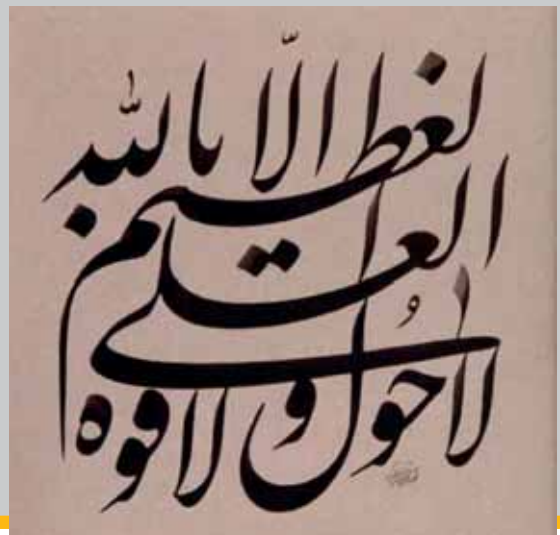 لا حول ولا قوه
الا بالله
العلی
العظیم